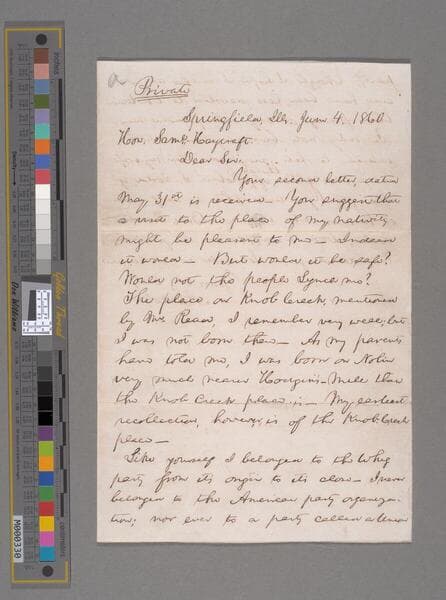 a
Private
Springfield, Ills. June 4, 1860
Hon. Saml. Haycraft.
Dear Sir:
Your second letter, dated
May 31st is received. You suggest that
a visit to the place of my nativity
might be pleasant to me - Indeed
it would - But would it be safe?
Would not the people Lynch me?
The place on Knob Creek, mentioned
by Mr. Read, I remember very well; but
I was not born there - As my parents
have told me, I was born on Nolin
very much nearer Hodgins-Mill than
the Knob Creek place is - My earliest
recollection, however, is of the Knob Creek
place -
Like yourself I belonged to the Whig
party from its origin to its close - I never
belonged to the American party organiza-
tion; nor ever to a party called a Union
inches
centimeters
Golden Thread
M000330